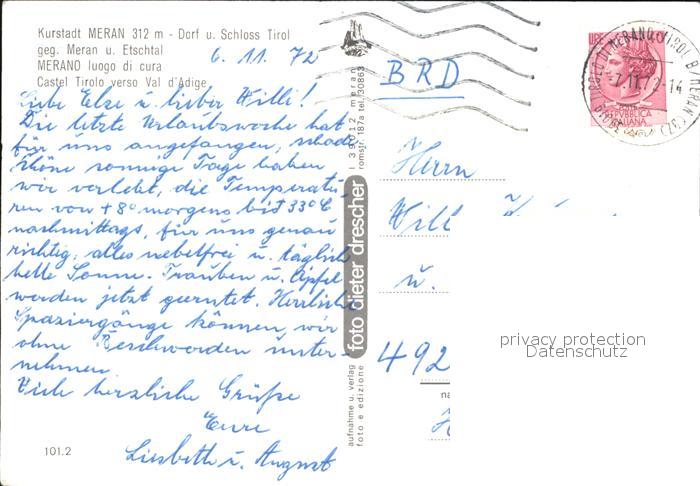 Kurstadt MERAN 312 m - Dorf u. Schloss Tirol
geg. Meran u. Etschtal
MERANO luogo di cura
Castel Tirolo verso Val d'Adige
6. 11. 72
Liebe Else u. lieber Willi!
Die letzte Urlaubswoche hat
für uns angefangen, schade
schöne sonnige Tage haben
wir verlebt, die Temperatu-
ren von +8° morgens bis 33°C
nachmittags, für uns genau
richtig, alles nebelfrei u. täglich
helle Sonne. Trauben u. Äpfel
werden jetzt geerntet. Herrliche
Spaziergänge können wir
ohne Beschwerden unter-
nehmen.
Viele herzliche Grüße
Eure
Liesbeth u. August
101.2
I 39012 meran
romstr. 187a tel. 30863
foto dieter drescher
aufnahme u. verlag
foto e edizione
BRD
Herrn
Will
u.
492
na
privacy protection
Datenschutz
LIRE
REPVBBLICA
ITALIANA
7.11.72-14